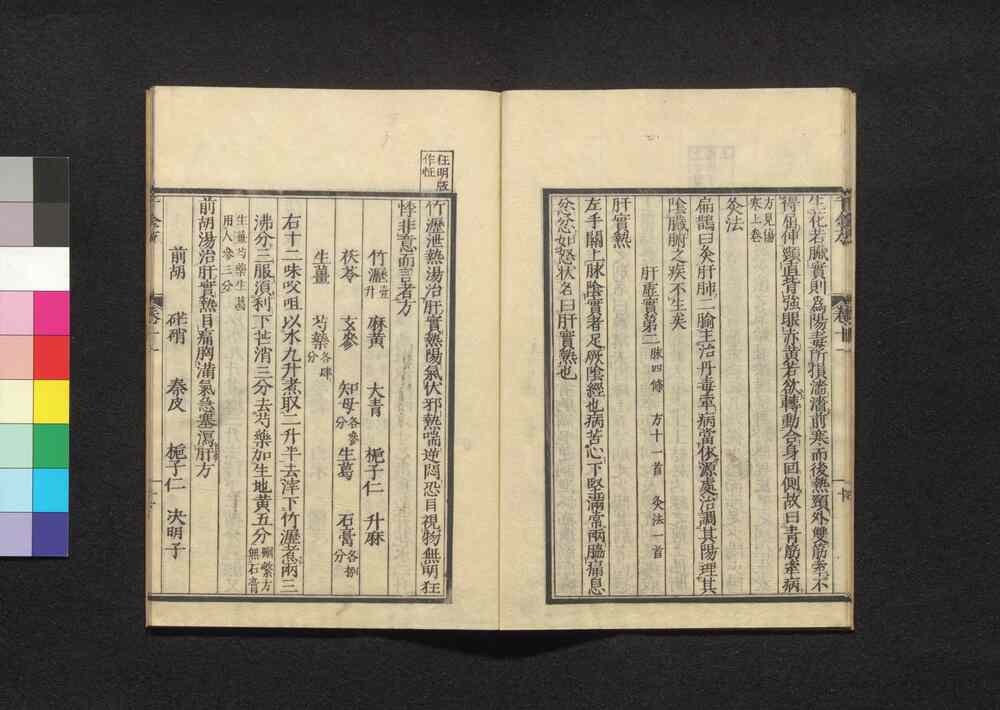 生花若臟實則為陽毒所損濇濇前寒而後熱頸外雙筋牽不
得屈伸頸直背強眼赤黃若欲轉動合身回側故曰青筋牽病
方見傷
寒上卷
灸法
扁鵲曰灸肝肺二腧主治丹毒牽病當依源處治調其陽理其
陰臟腑之疾不生矣
肝虛實第二 脉四條 方十一首 灸法一首
肝實熱
左手關上脉陰實者足厥陰經也病苦心下堅滿常兩脇痛息
忿忿如怒狀名曰肝實熱也
狂明版
作性
竹瀝泄熱湯治肝實熱陽氣伏邪熱喘逆悶恐目視物無明狂
悖非意而言者方
竹瀝壹升 麻黃 大青 梔子仁 升麻
茯苓 玄參 知母各參分 生葛 石膏各捌分
生薑 芍藥各肆分
右十二味㕮咀以水九升煮取二升半去滓下竹瀝煮兩三
沸分三服須利下芒消三分去芍藥加生地黃五分
無石膏
生薑芍藥生葛
用人參三分
前胡湯治肝實熱目痛胸滿氣急塞瀉肝方
前胡 秦皮 梔子仁 決明子